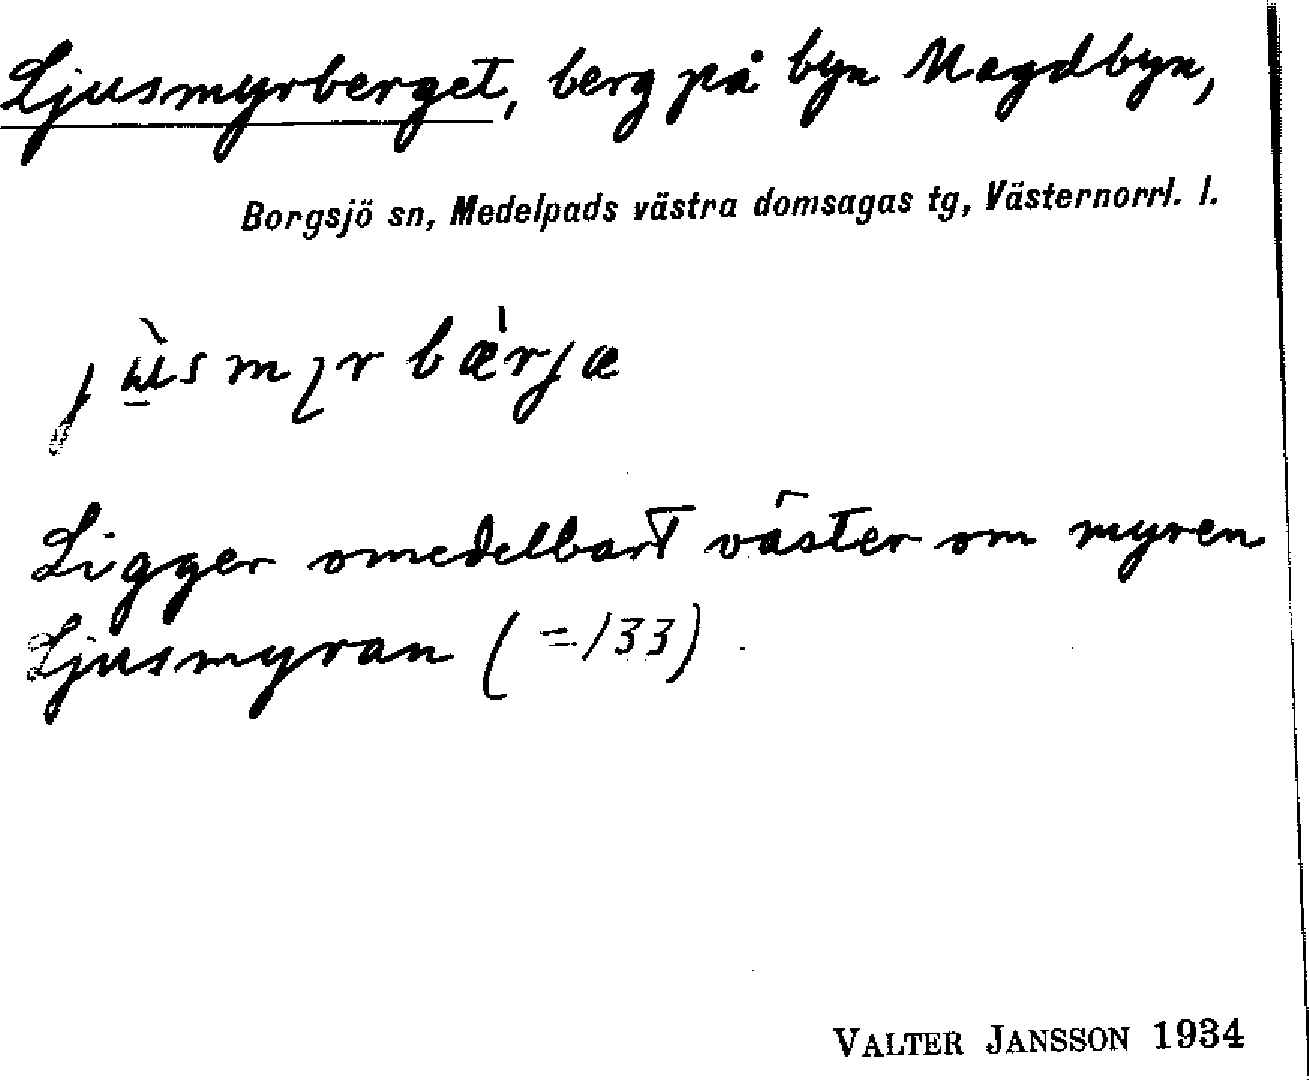 Ljusmyrberget, berg på byn Magdbyn,
Borgsjö sn, Medelpads västra domsagas tg, Västernorrl. l.
Ligger omedelbart väster om myren
Ljusmyran (=133)
VALTER JANSSON 1934